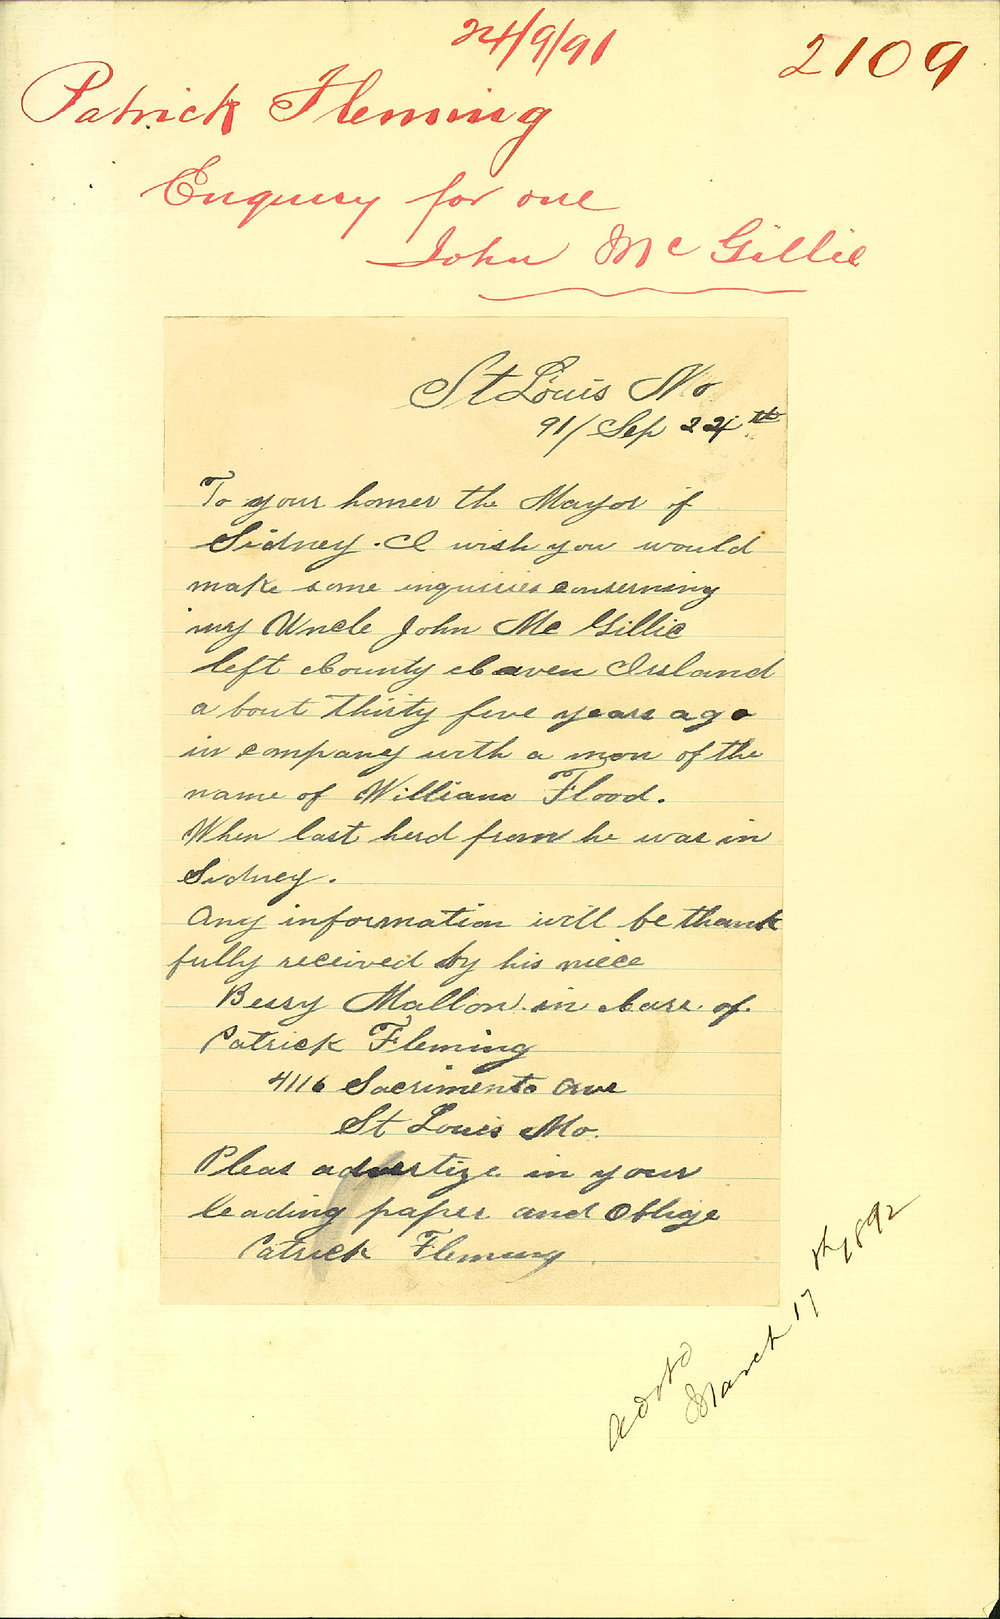 24/9/91
2109
Patrick Fleming
Enquiry for one
John McGillie
St Louis Mo
91/ Sep 24th
To your honer the Mayor of
Sidney. I wish you would
make some inquiries conserning
my Uncle John Mc Gillic
left County Caven Irsland
about Thirty five years ago
in company with a man of the
name of William Flood.
When last herd from he was in
Sidney.
Any information will be thank
fully received by his niece
Bessy Mallon in Care of
Patrick Fleming
4116 Sacrimento Ave
St Louis Mo.
Pleas advertize in your
leading paper and Oblige
Patrick Fleming
March 17th 1892